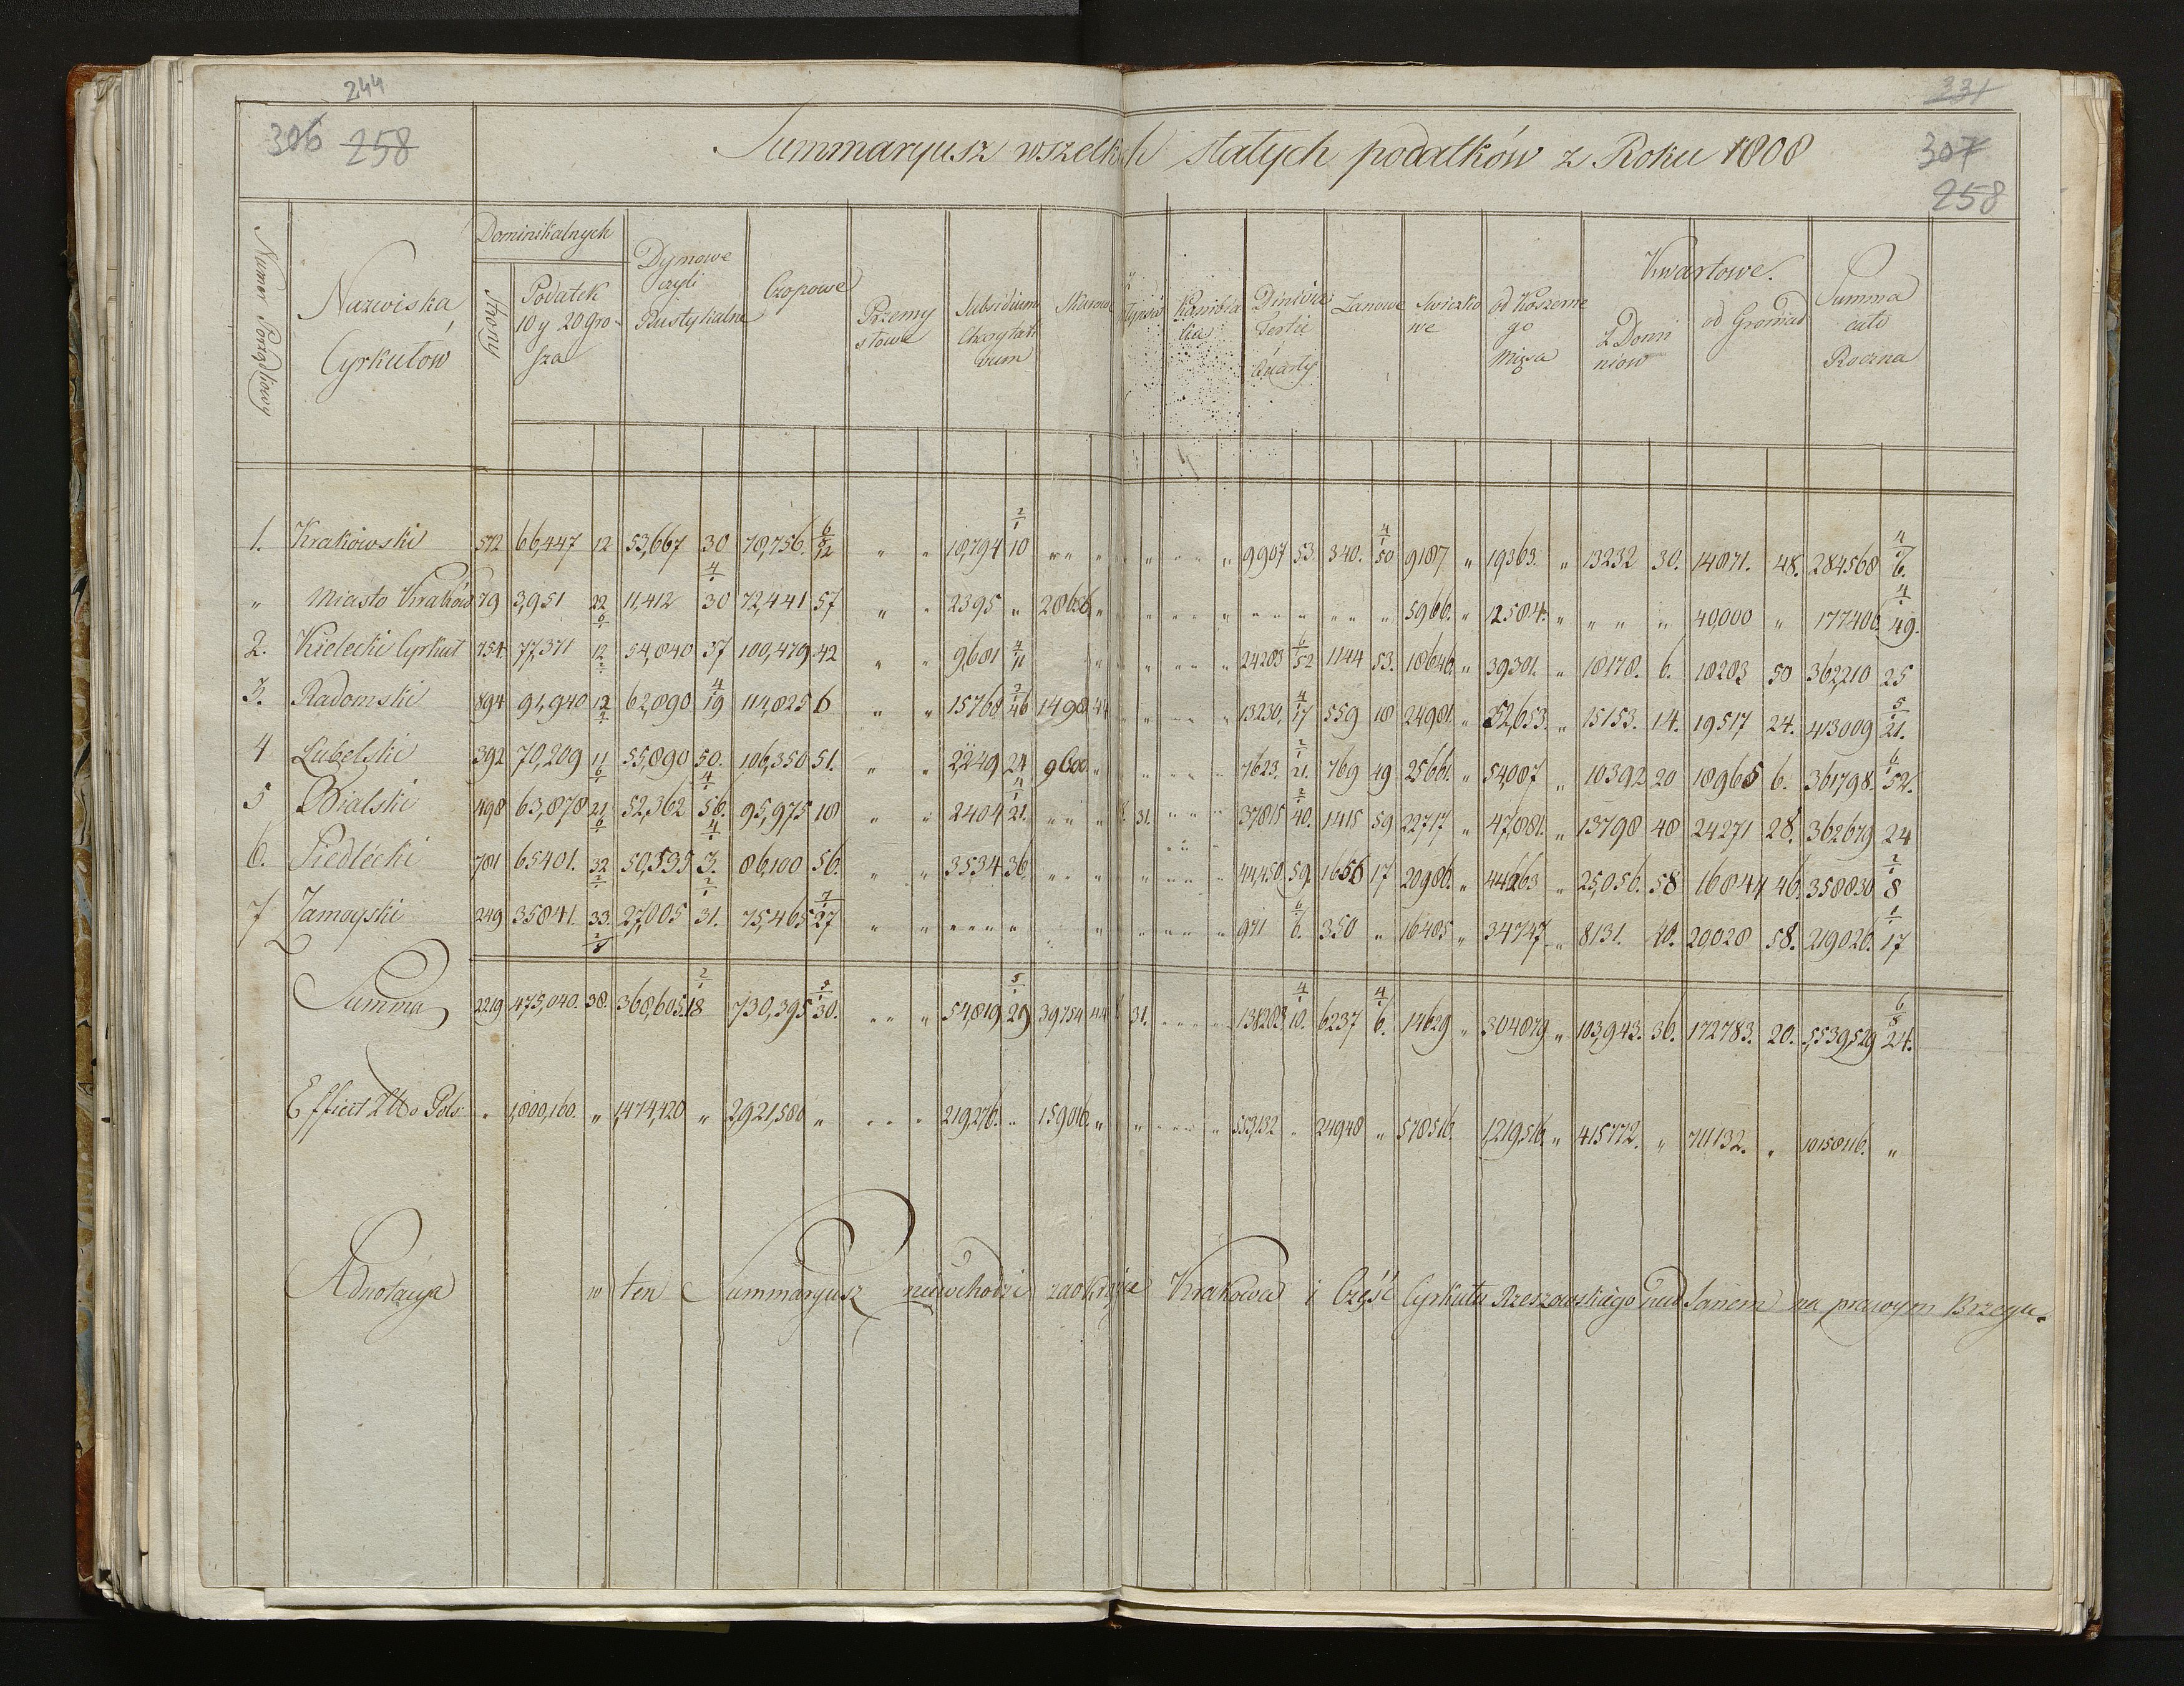 244
306 258
331
307
258
Summaryusz wszelkich stałych podatków z Roku 1808
Numer Porządkowy
Nazwiska Cyrkułów
Dominikalnych
Strony
Podatek 10 y 20 grosza
Dymowe czyli Rustykalne
Czopowe
Przemysłowe
Subsidium Charytativum
Kwartowe.
Łanowe
Swieczkowe
od Koszernego Mięsa
z Dominiow
od Gromad
Summa cało Roczna
1. Krakowski 572 66,447 12 53,667 30 78,756. 6/8 12 " " 10,794 2/1 10 " " " " " " " 9907 53. 340. 4/1 50 9187 " 19363. " 13232 30. 14871. 48. 284568 4/7 6.
" Miasto Kraków 79 3,951 22 11,412 4/1 30 72,441 57 " " 2395 " 28656 " " " " " " " " " " 5966. " 12584. " " " " 40,000 " 177406 4/1 49.
2. Kielecki Cyrkuł 754 77,371 6/1 12 54,840 37 100,479 42 " " 9,681 4/11 " " " " " " 24283 6/1 52 1144 53. 18640. " 39301. " 18178. 6. 18283 50 362,210 25
3. Radomski 894 91,940 2/1 12 62,890 4/1 19 114,825 6 " " 15768 2/1 46 1498 44 " " " " 13230, 4/1 17 559 18 24981. " 52,653. " 15153. 14. 19517 24. 413009 5/1 21.
4 Lubelski 392 70,209 2/1 11 55,890 50. 106,350 51. " " 2,249 24 9600 " " " " " 7623. 2/1 21. 769 49 25661. " 54,087 " 10392 20 18965 6. 361798. 6/1 52.
5 Bialski 498 63,878 6/1 21 52,362 4/1 56. 95,975 18 " " 2404 4/1 21. " " " 31. " " " 37815 2/1 40. 1415 59 22717 " 47,881. " 13798 48 24271 28. 362679 24
6. Siedlecki 781 65401. 6/1 32 50,535 4/1 3. 86,100 56. " " 3534 36. " " " " " " " 44,450 59. 1656 17 20986. " 44263 " 25,056. 58 16844 46. 358830 2/1 8
7 Zamoyski 249 35841. 2/1 33. 27,005 2/1 31. 75,465 7/1 27 " " " " " " " " " " 971 6/1 6. 350 " 16485 " 34747 " 8131. 40. 20,028 58. 219026. 1/1 17
Summa 2219 475,040. 2/8 38. 368,605. 2/1 18 730,395 5/1 30. " " " 54,819 5/1 29 39754 44 31. " " " 138283. 4/1 10. 6237 4/1 6. 14629 " 304879 " 103,943. 36. 172783. 20. 5,539,529 6/8 24.
1,800,160. " 1,474,420 " 2,921,580 " " " " 219,276. " 159,016. " " " " " 553,132 " 24948 " 578516. 1,219,516. " 415772. " 711132. " 10158116. "
Adnotacya w ten Summaryusz niewchodzi zaokręgie Krakowa i Część Cyrkułu Rzeszowskiego nad Sanem na prawym Brzegu.